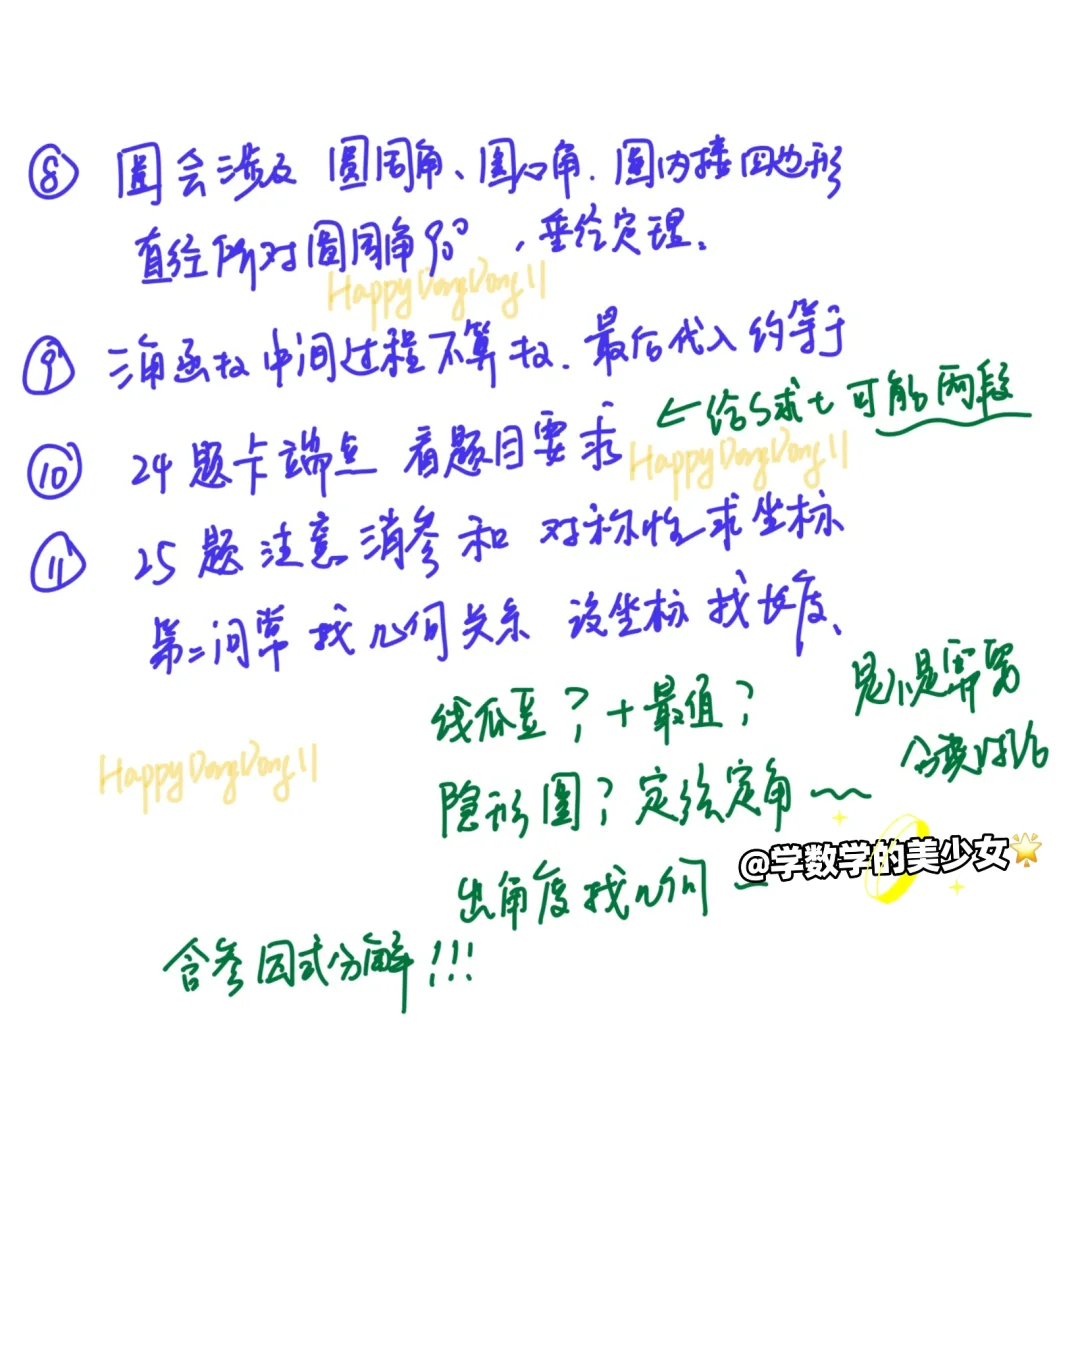 ⑧ 圆会涉及 圆周角、圆心角.圆内接四边形
直径所对圆周角90°,垂径定理.
HappyDongDong11
⑨ 三角函数中间过程不算数.最后代入约等于
←给S求t可能两段
⑩ 24题卡端点 看题目要求
HappyDongDong11
⑪ 25题注意消参和 对称性求坐标
第二问常找几何关系 设坐标找长度、
线瓜豆?+最值?
是不是需要
分类讨论
HappyDongDong11
隐形圆?定弦定角~~
@学数学的美少女🌟
出角度找几何 —
含参因式分解!!!